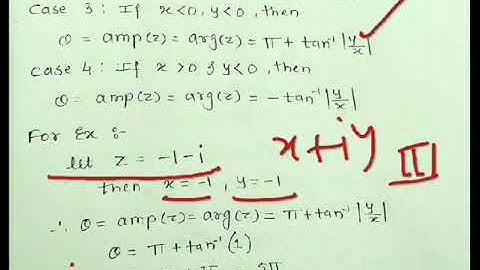 Case 3: If x<0, y<0, then
θ = amp(z) = arg(z) = π + tan⁻¹|y/x|
Case 4: If x>0 & y<0, then
θ = amp(z) = arg(z) = -tan⁻¹|y/x|
For Ex :-
let z = -1-i
x+iy
III
then x = -1, y = -1
∴ θ = amp(z) = arg(z) = π + tan⁻¹|y/x|
θ = π + tan⁻¹(1)